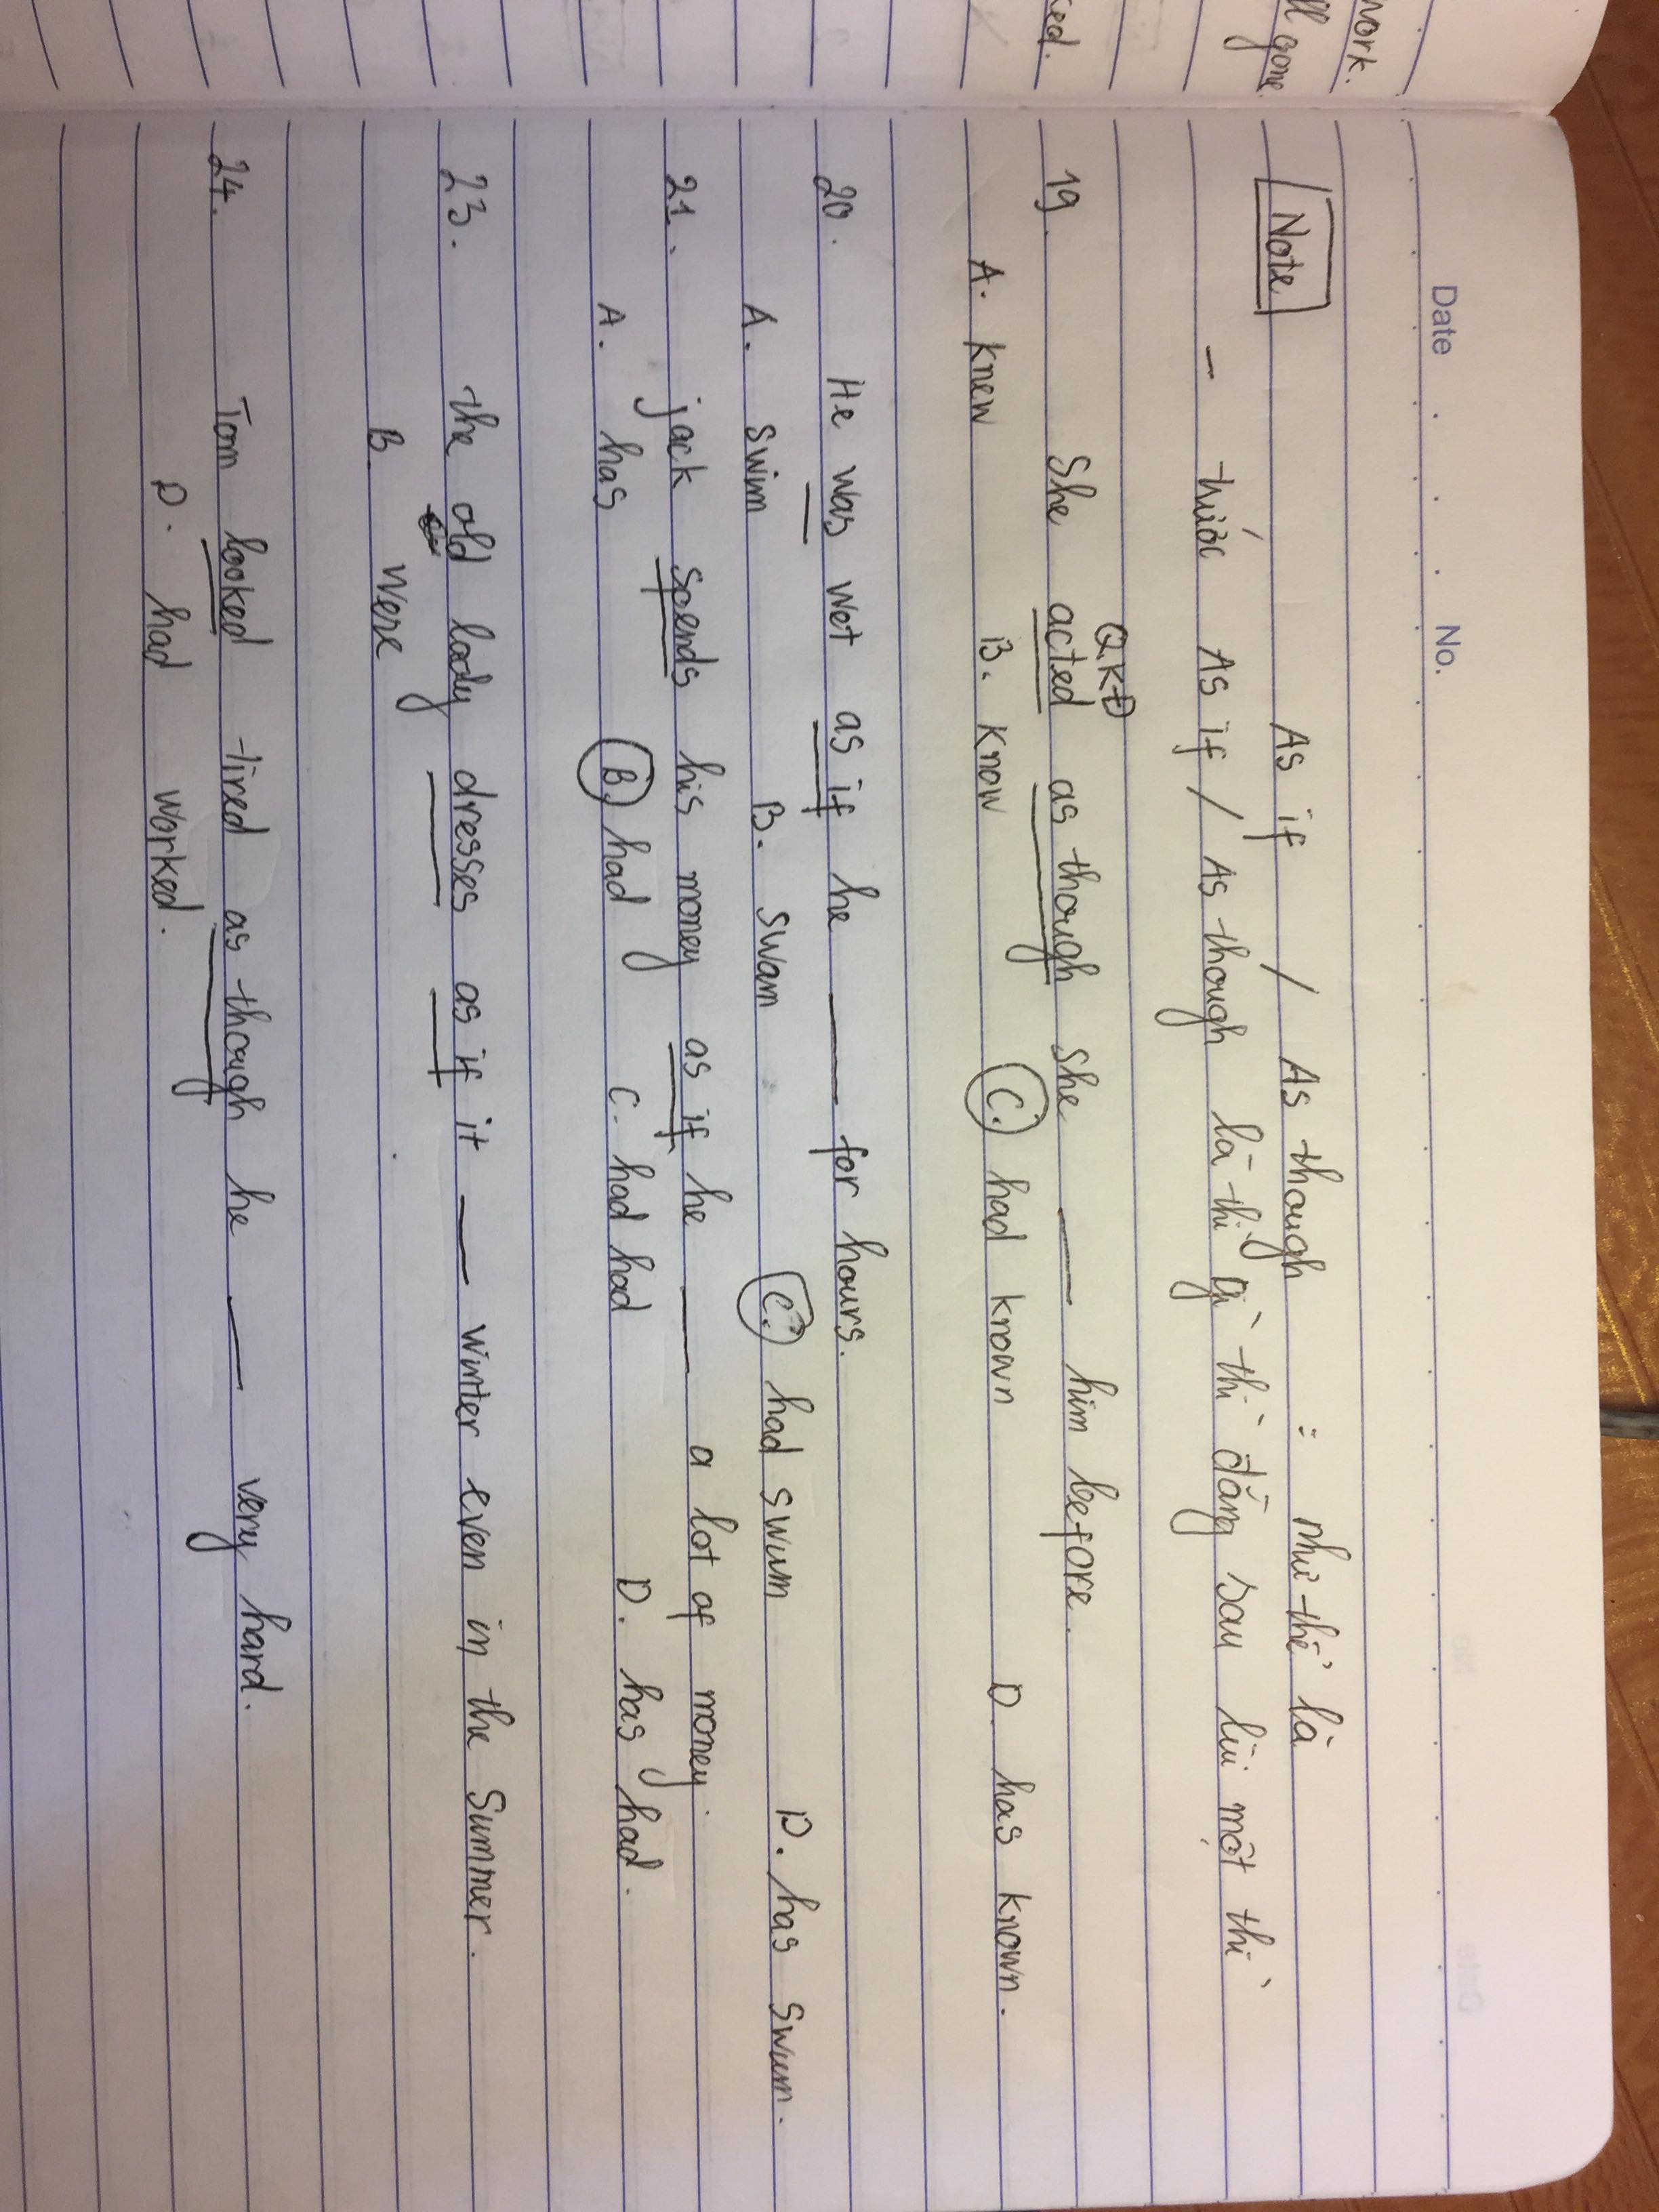 work.
ll gone.
ked.
Date No.
Note As if / As though : như thể là
- trước As if / As though là thì gì thì đằng sau lùi một thì
QKĐ
19. She acted as though she ___ him before.
A. knew B. know C. had known D. has known.
20. He was wet as if he ___ for hours.
A. swim B. swam C. had swum D. has swum.
21. jack spends his money as if he ___ a lot of money.
A. has B. had C. had had D. has had.
23. the old lady dresses as if it ___ winter even in the Summer.
B. were
24. Tom looked tired as though he ___ very hard.
D. had worked.